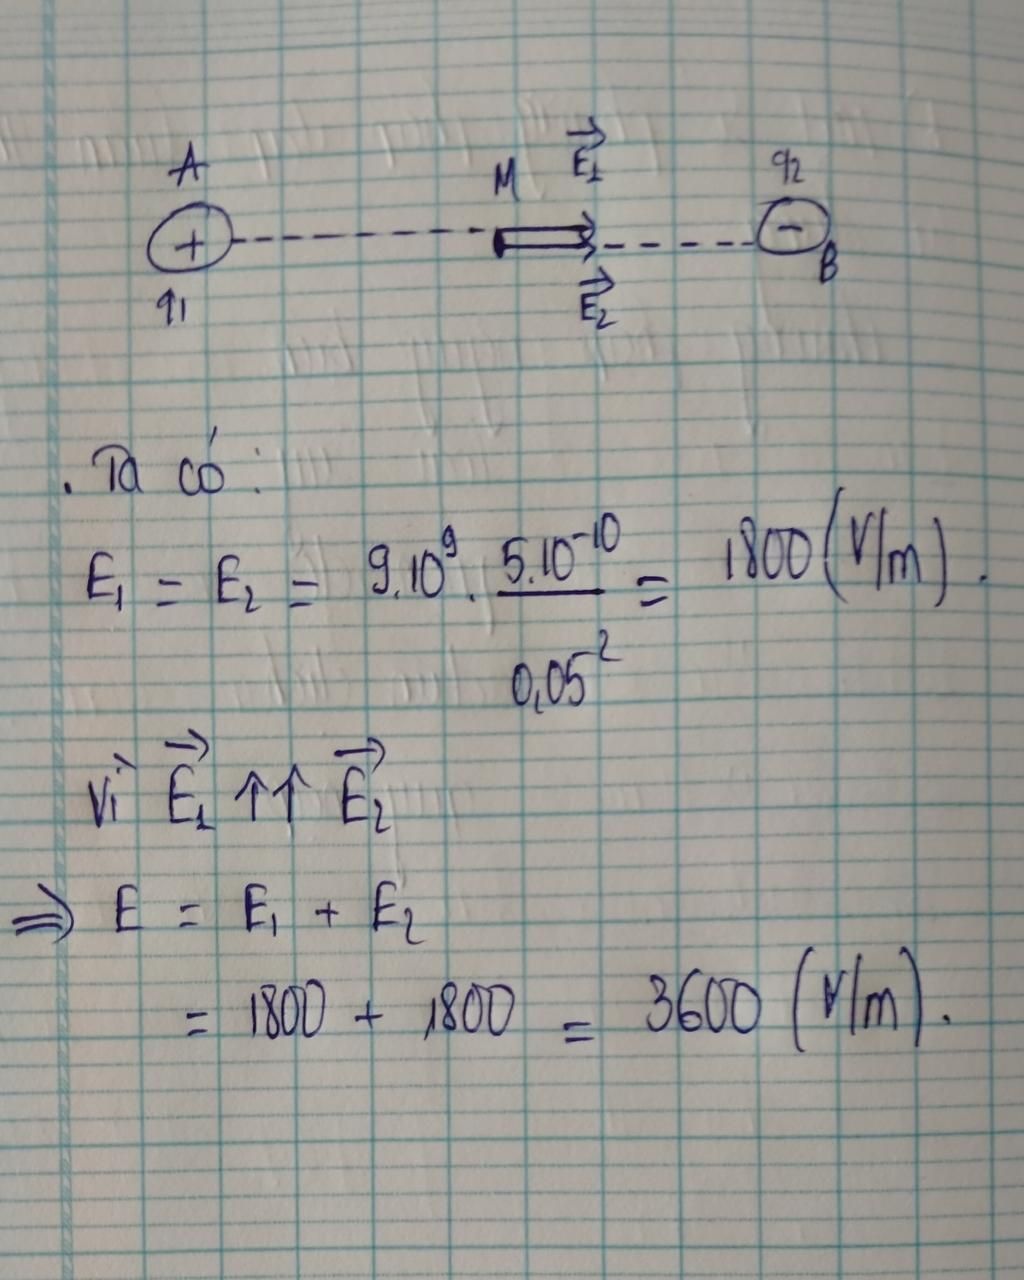 A M E⃗₁ q₂
+ -
q₁ E⃗₂ B
. Ta có :
E₁ = E₂ = 9.10⁹ . 5.10⁻¹⁰ / 0,05² = 1800 (V/m) .
Vì E⃗₁ ↑↑ E⃗₂
⇒ E = E₁ + E₂
= 1800 + 1800 = 3600 (V/m) .